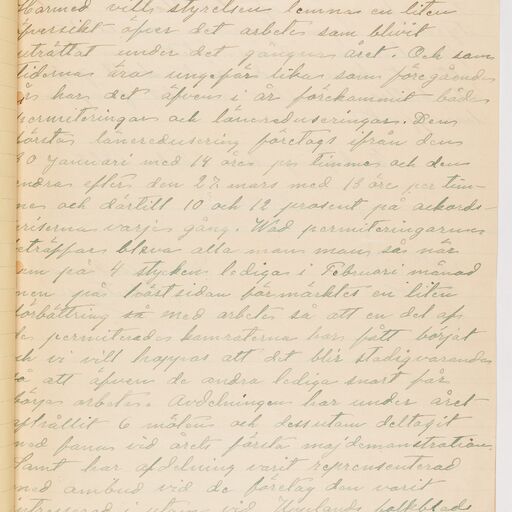 Härmed vill styrelsen lemna en liten
öfversikt öfver det arbete som blivit
uträttat under det gångna året. Och som
tiderna äro ungefär lika som föregående
år har det äfven i år förekommit både
permiteringar och lönereduseringar. Den
första lönereduseringen företogs ifrån den
30 Januari med 14 öre pr timme och den
andra efter den 27 mars med 13 öre per tim-
me och därtill 10 och 12 prosent på ackords-
priserna varje gång. Wad permiteringarna
beträffar bleva alla man man så när
som på 4 stycken lediga i Februari månad
men på höstsidan förmärktes en liten
förbättring så med arbete så att en del af
de permiterade kamraterna har fått börjat
och vi vill hoppas att det blir stadigvarande
så att äfven de andra lediga snart får
börja arbeta. Avdelningen har under året
afhållit 6 möten och dessutom deltagit
med fanan vid årets första majdemonstration.
Samt har afdelning varit representerad
med ombud vid de företag den varit
intresserad i vid folkblads